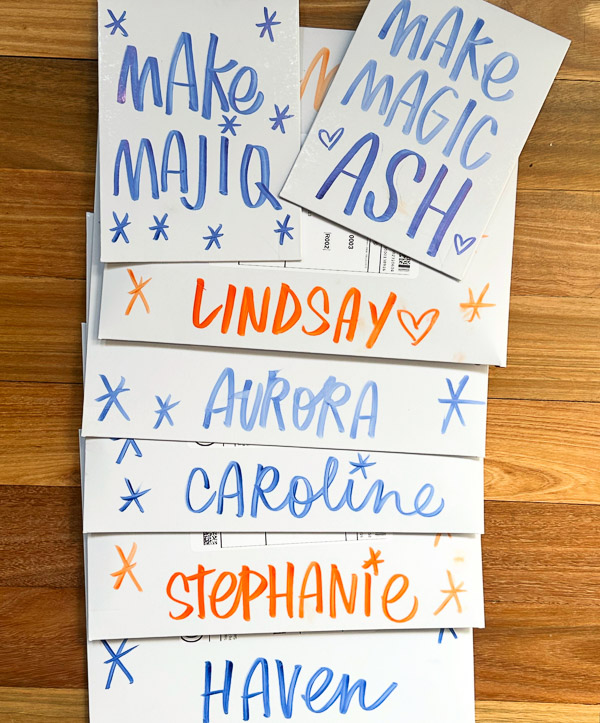 MAKe
MAJIQ
MAKe
MAGIC
ASH
0003
R002
LINDSAY
AURORA
CAROline
STEPHANiE
HAVen